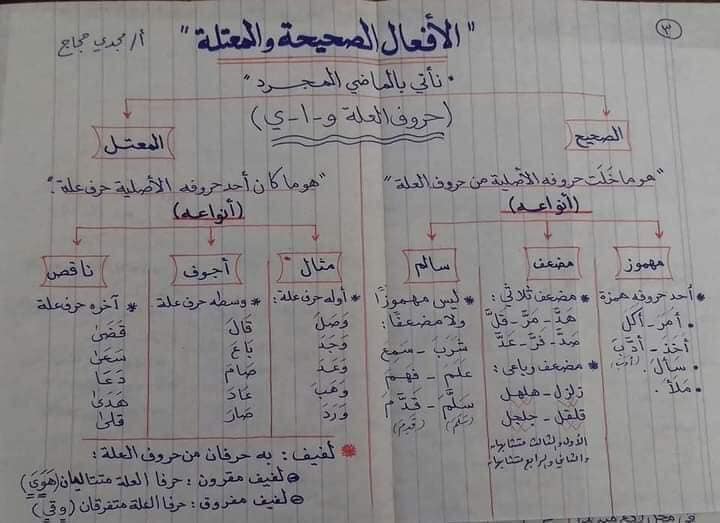 ٣
"الأفعال الصحيحة والمعتلة"
أ/ مجدي حجاج
• نأتي بالماضي المجرد "
(حروف العلة و-ا-ي)
الصحيح
"هو ما خَلَت حروفه الأصلية من حروف العلة"
(أنواعه)
مهموز
* أحد حروفه همزة
• أمَرَ - أكل
أخذ - أدَّبَ
(أدب)
• سأل
• ملأ
مضعف
* مضعف ثلاثي:
هَدَّ - مَرَّ - قَلَّ
صَدَّ - فَرَّ - عَدَّ
* مضعف رباعي:
زلزل - هلهل
قلقل - جلجل
الأول والثالث متشابهان
والثاني والرابع متشابهان
سالم
* ليس مهموزًا
ولا مضعفًا:
شَرِبَ - سَمِعَ
عَلِمَ - فَهِمَ
سَلَّمَ - قَدَّمَ
(سَلِمَ) (قَدِمَ)
المعتل
"هو ما كان أحد حروفه الأصلية حرف علة":
(أنواعه)
مثال
* أوله حرف علة:
وَصَلَ
وَجَدَ
وَعَدَ
وَهَبَ
وَرَدَ
أجوف
* وسطه حرف علة
قَالَ
بَاعَ
صَامَ
عَادَ
صَارَ
ناقص
* آخره حرف علة
قَضَىٰ
سَعَىٰ
دَعَا
هَدَىٰ
قَلَىٰ
* لفيف: به حرفان من حروف العلة:
لفيف مقرون: حرفا العلة متتاليان (هَوَيَ)
لفيف مفروق: حرفا العلة متفرقان (وقي)